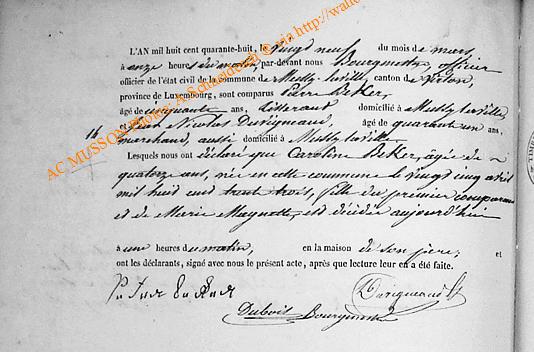 L'AN mil huit cent quarante-huit, le vingt neuf du mois de mars,
à onze heures du matin, par-devant nous Bourgmestre, officier
officier de l'état civil de la commune de Mussy-la-ville, canton de Virton,
province de Luxembourg, sont comparus Pierre Beker,
âgé de cinquante ans, domicilié à Mussy-laville,
et Jean Nicolas Duvigneaud, âgé de quarante un ans,
16
marchand, aussi domicilié à Mussy-laville
Lesquels nous ont déclaré que Caroline Beker, âgée de
quatorze ans, née en cette commune le vingt cinq avril
mil huit cent trente trois, fille du premier comparant
et de Marie Magnette, est décédée aujourd'hui
à une heures du matin, en la maison de son père; et
ont les déclarants, signé avec nous le présent acte, après que lecture leur en a été faite.
Duvigneaud
Dubois Bourgmestre
AC MUSSON Photos: A Schneidesch @ via http://